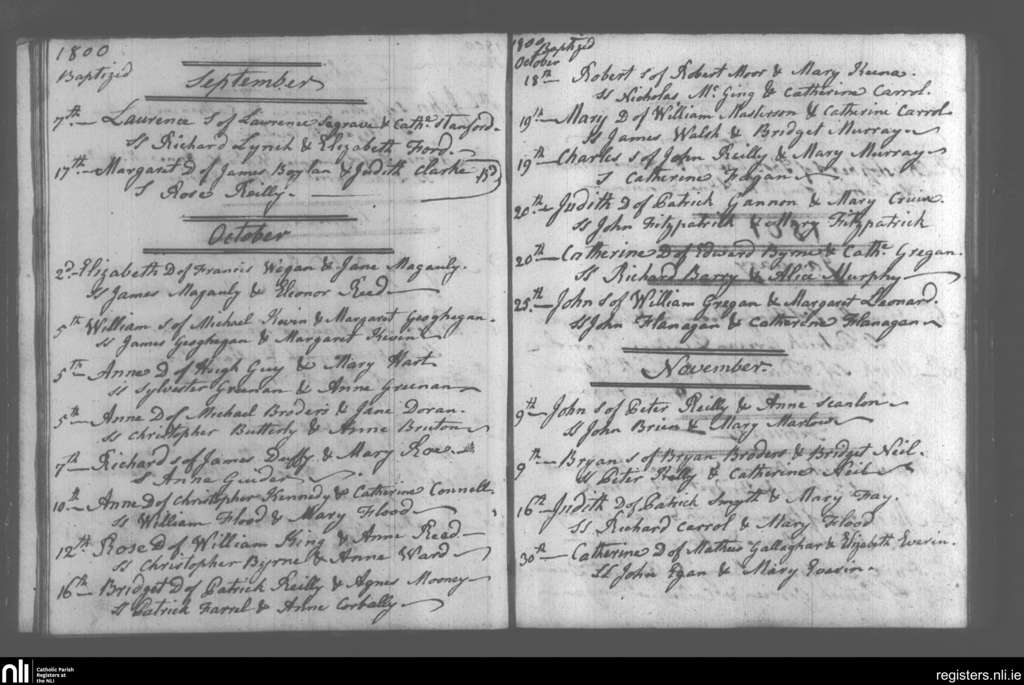 1800
Baptized
September
7th Laurence S of Laurence Sagrave & Cathe Stanford.
Ss Richard Lynch & Elizabeth Ford.
17th Margaret D of James Boylan & Judith Clarke
S Rose Reilly.
October
2d Elizabeth D of Francis Wogan & Jane Magauly.
Ss James Magauly & Eleonor Reed
5th William S of Michael Kevin & Margaret Geoghegan.
Ss James Geoghegan & Margaret Kevin
5th Anne D of Hugh Guy & Mary Hart
Ss Sylvester Greenan & Anne Greenan
5th Anne D of Michael Broders & Jane Doran.
Ss Christopher Butterly & Anne Bruton
7th Richard S of James Duffy & Mary Roe.
S Anne Guider
10th Anne D of Christopher Kennedy & Catherine Connell.
Ss William Flood & Mary Flood
12th Rose D of William King & Anne Read.
Ss Christopher Byrne & Anne Ward
16th Bridget D of Patrick Reilly & Agnes Mooney
Ss Patrick Farrel & Anne Corbally
1800 Baptized
October
18th Robert S of Robert Moor & Mary Keena.
Ss Nicholas Mc Ging & Catherine Carrol.
19th Mary D of William Masterson & Catherine Carrol
Ss James Walsh & Bridget Murray
19th Charles S of John Reilly & Mary Murray
S Catherine Fagan
20th Judith D of Patrick Gannon & Mary Cruise
Ss John Fitzpatrick & Mary Fitzpatrick
20th Catherine D of Edward Byrne & Cathe Gregan.
Ss Richard Barry & Alice Murphy
25th John S of William Gregan & Margaret Leonard.
Ss John Flanagan & Catherine Flanagan
November.
9th John S of Peter Reilly & Anne Scanlon
Ss John Brien & Mary Marlow
9th Bryan S of Bryan Broders & Bridget Neil.
Ss Peter Kelly & Catherine Neil
16th Judith D of Patrick Smyth & Mary Fay.
Ss Richard Carrol & Mary Flood
30th Catherine D of Mathew Gallaghar & Elizabeth Everin.
Ss John Egan & Mary
nli Catholic Parish
Registers at
the NLI
registers.nli.ie